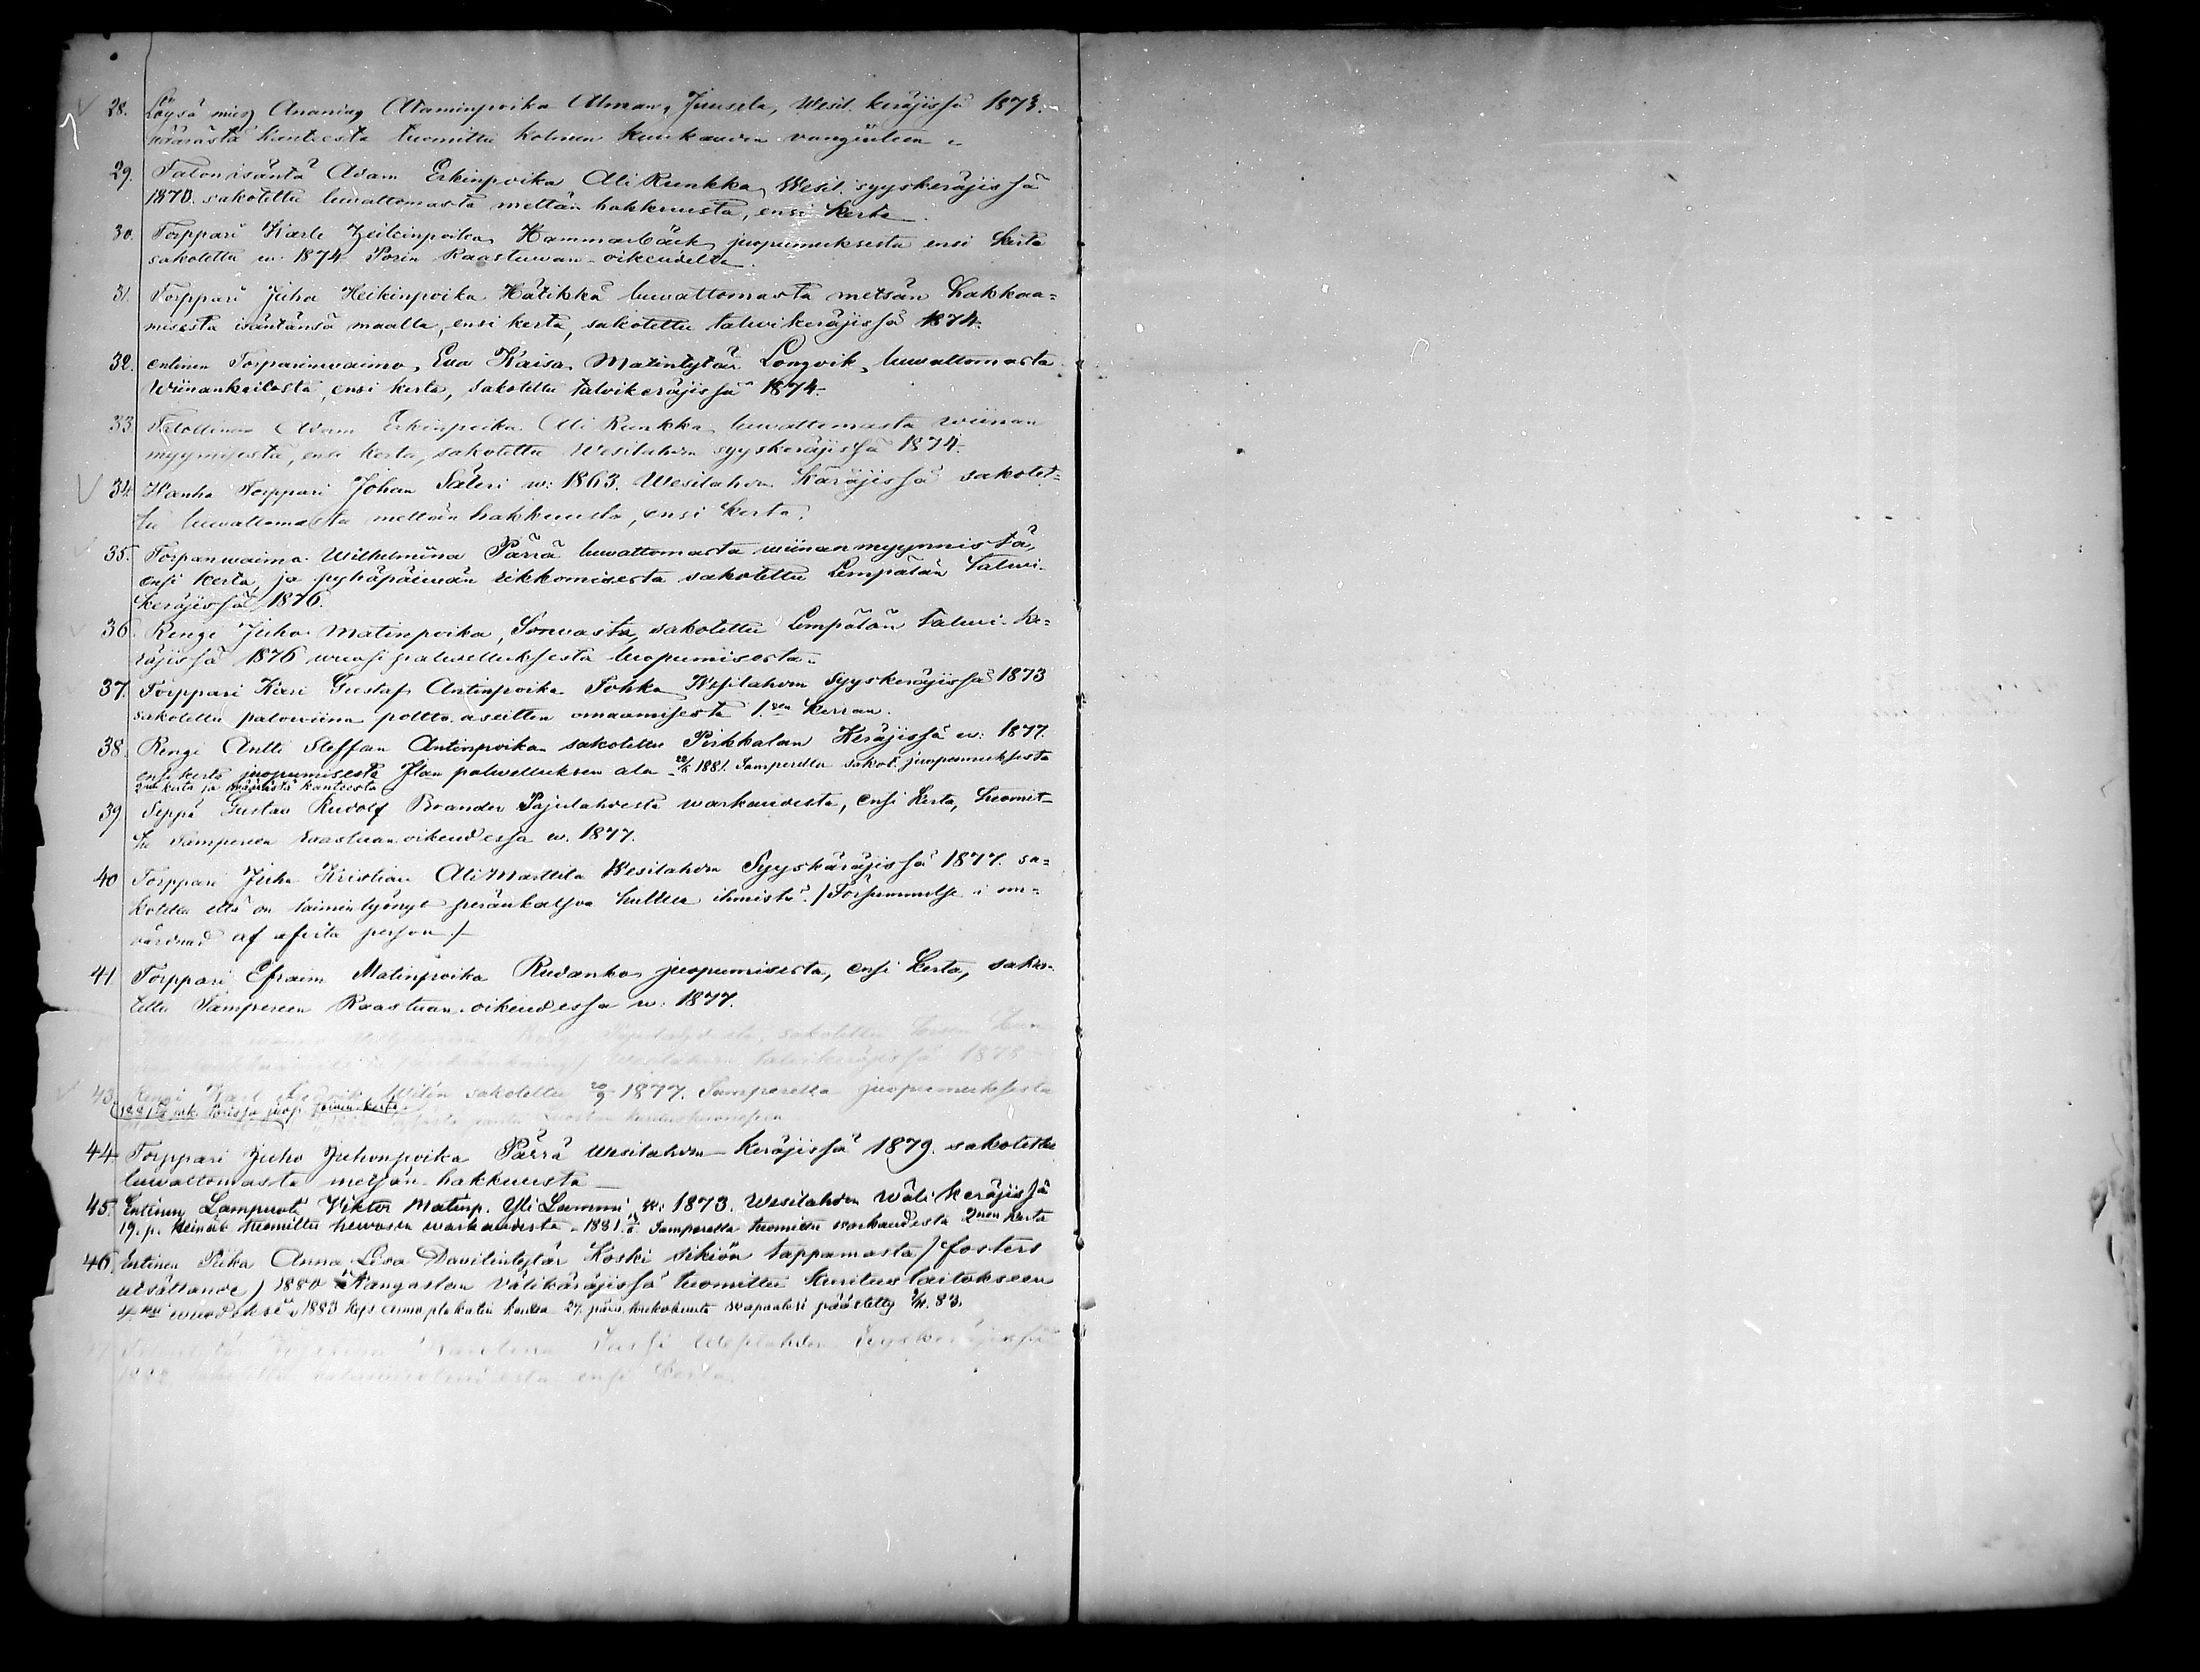 28. Löysä mies Ananias Ataminpoika Alman, Juusela, Wesil. keräjissä 1873.
väärästä kanteesta tuomittu kolmen kuukauden vangiuteen
29. Talon isäntä Adam Erkinpoika Ali Runkka, Wesil. syyskeräjissä
1870. sakotettu luvattomasta mettän hakkuusta, ensi kerta
30. Torppari Karle Hammarbäck, juopumuksesta ensi kerta
sakotettu w. 1874 Porin Raastuwan-oikeudelta
31. Torppari Juha Heikinpoika Hätikkä luvattomasta metsän hakkaa=
misesta isäntänsä maalla, ensi kerta, sakotettu talvikeräjissä 1874.
32. entinen Torparinwaimo, Eva Kaisa Matintytär Longvik, luvattomasta
Wiinankeitosta, ensi kerta, sakotettu talvikeräjissä 1874.
33. Talollinen Adam Erkinpoika Ali Runkka luvattomasta wiinan
myymisestä, ensi kerta, sakotettu Wesilahden syyskeräjissä 1874.
34. Wanha Torppari Johan Säteri w: 1863. Wesilahden Käräjissä sakotet=
tu luvattomasta mettän hakkuusta, ensi kerta.
35. Torpanwaimo Wilhelmiina Pärrä luvattomasta wiinan myynnistä,
ensi kerta, ja pyhäpäiwän rikkomisesta sakotettu Lempälän Talwi-
keräjissä 1876.
36. Renge Juho Matinpoika, Sorwasta, sakotettu Lempälän Talwi-ke=
räjissä 1876 wuosi palwelluksesta luopumisesta
37. Torppari Kaari Gustaf Antinpoika Tohka Wesilahden Syyskeräjissä 1873
sakotettu palowiina poltto aseitten omaamisesta 1.sen kerran.
38. Rengi Antti Steffan Antinpoika sakotettu Pirkkalan Keräjissä w: 1877.
ensi kerta juopumisesta Ilan palwelluksen ala 1881. Tampereella sakot. juopumuksesta
2nen kerta ja väärästä kanteesta
39. Seppä Gustav Rudolf Brander Pajulahdesta warkaudesta, ensi kerta, tuomit-
tu Tampereen Raastuan oikeudessa w. 1877.
40 Torppari Juha Kristian Ali Marttila Wesilahden Syyskäräjissä 1877. sa=
kotettu että on laiminlyönyt peränkatsoa hullua ihmistä. /Försummelse i om=
vårdnad af afvita person./
41. Torppari Efraim Matinpoika Rudanko juopumisesta, ensi kerta, sako-
tettu Tampereen Raastuan oikeudessa w. 1877.
sakotettu
Wesilahden talvikeräjissä 1878
43. Rengi Karl sakotettu 20/9 1877. Tampereella juopumuksesta
juop. toinen kerta
44. Torppari Juho Juhonpoika Pärrä Wesilahden Keräjissä 1879. sakotettu
luwattomasta metsän hakkuusta
45. Entinen Lampuoti Viktor Matinp. Yli Lammi, w: 1873. Wesilahden wälikeräjissä
19. p. Heinäk tuomittu hewosen warkaudesta. 1881. Tampereella tuomittu warkaudesta 2nen kerta
46. Entinen Piika Anna Lisa Davitintytär Koski sikiön tappamasta / fosters
utsättande) 1880 Kangaslan Välikäräjissä tuomittu kuritus laitokseen
4. wuodeksi. 1883 plakatin kautta 27. päiv. wapaaksi päästetty 83.
Karolina Syyskeräjissä
ensi kerta.